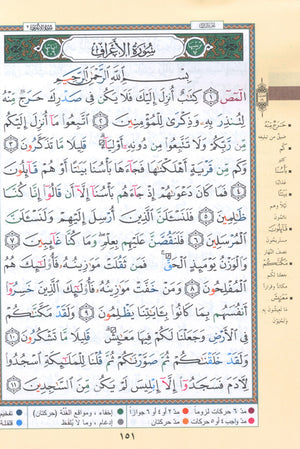 سُورَةُ الأَعْرَافِ
بِسْمِ اللَّهِ الرَّحْمَٰنِ الرَّحِيمِ
الٓمٓصٓ ١ كِتَٰبٌ أُنزِلَ إِلَيْكَ فَلَا يَكُن فِى صَدْرِكَ حَرَجٌ مِّنْهُ
لِتُنذِرَ بِهِۦ وَذِكْرَىٰ لِلْمُؤْمِنِينَ ٢ اتَّبِعُوا۟ مَآ أُنزِلَ إِلَيْكُم
مِّن رَّبِّكُمْ وَلَا تَتَّبِعُوا۟ مِن دُونِهِۦٓ أَوْلِيَآءَ ۗ قَلِيلًا مَّا تَذَكَّرُونَ ٣
وَكَم مِّن قَرْيَةٍ أَهْلَكْنَٰهَا فَجَآءَهَا بَأْسُنَا بَيَٰتًا أَوْ هُمْ قَآئِلُونَ
٤ فَمَا كَانَ دَعْوَىٰهُمْ إِذْ جَآءَهُم بَأْسُنَآ إِلَّآ أَن قَالُوٓا۟ إِنَّا كُنَّا
ظَٰلِمِينَ ٥ فَلَنَسْـَٔلَنَّ الَّذِينَ أُرْسِلَ إِلَيْهِمْ وَلَنَسْـَٔلَنَّ
الْمُرْسَلِينَ ٦ فَلَنَقُصَّنَّ عَلَيْهِم بِعِلْمٍ ۖ وَمَا كُنَّا غَآئِبِينَ ٧
وَالْوَزْنُ يَوْمَئِذٍ الْحَقُّ ۚ فَمَن ثَقُلَتْ مَوَٰزِينُهُۥ فَأُو۟لَٰٓئِكَ هُمُ
الْمُفْلِحُونَ ٨ وَمَنْ خَفَّتْ مَوَٰزِينُهُۥ فَأُو۟لَٰٓئِكَ الَّذِينَ خَسِرُوٓا۟
أَنفُسَهُم بِمَا كَانُوا۟ بِـَٔايَٰتِنَا يَظْلِمُونَ ٩ وَلَقَدْ مَكَّنَّٰكُمْ
فِى الْأَرْضِ وَجَعَلْنَا لَكُمْ فِيهَا مَعَٰيِشَ ۗ قَلِيلًا مَّا تَشْكُرُونَ ١٠
وَلَقَدْ خَلَقْنَٰكُمْ ثُمَّ صَوَّرْنَٰكُمْ ثُمَّ قُلْنَا لِلْمَلَٰٓئِكَةِ اسْجُدُوا۟
لِءَادَمَ فَسَجَدُوٓا۟ إِلَّآ إِبْلِيسَ لَمْ يَكُن مِّنَ السَّٰجِدِينَ ١١
حَرَجٌ مِّنْهُ
ضيق من تبليغه
كَم
كثير
بَأْسُنَا
عذابنا
بَيَٰتًا
ليلاً وهم
نائمون
قَآئِلُونَ
مستريحون
نصف النهار
مَكَّنَّٰكُمْ
جعلنا لكم
مكاناً وقراراً
مَعَٰيِشَ
ما تعيشون به
وتحيون
مدّ ٦ حركات لزوماً مدّ ٢ أو ٤ أو ٦ جوازاً إخفاء، ومواقع الغُنَّة (حركتان) تفخيم
مدّ واجب ٤ أو ٥ حركات مدّ حركتان إدغام، وما لا يُلفَظ قلقلة
١٥١